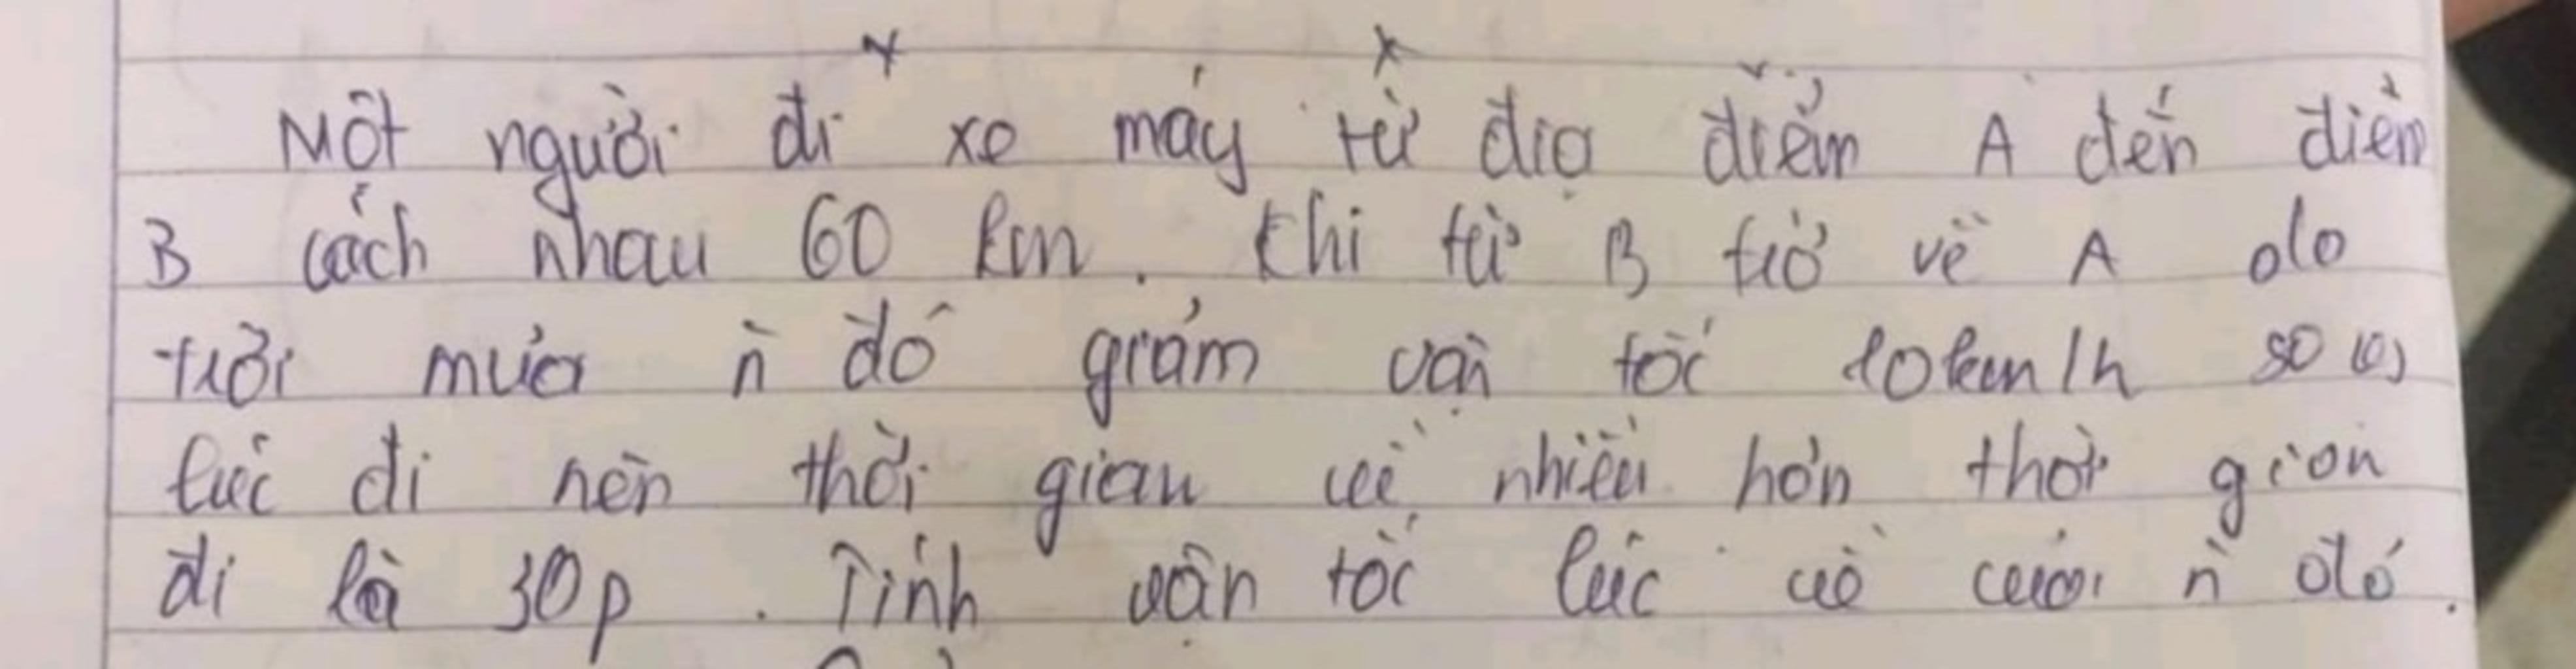 Một người đi xe máy từ địa điểm A đến điểm
B cách nhau 60 km. Khi từ B trở về A do
trời mưa n` đó giảm vận tốc 10km/h so với
lúc đi nên thời gian về nhiều hơn thời gian
đi là 30p. Tính vận tốc lúc về của n` đó.